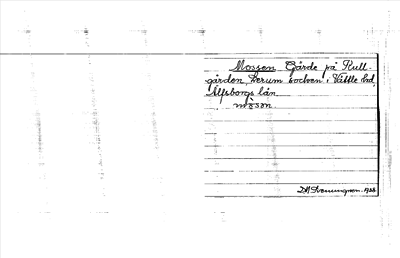 Mossen Gärde på Kull-
gården, Lerum socken i Vättle hd,
Älfsborgs län.
mɔsən
D. N. Svenungsson. 1928